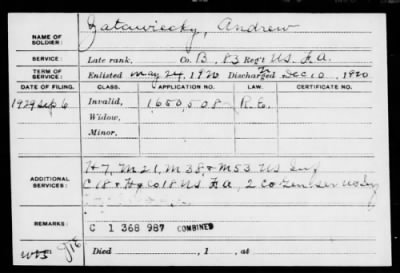 NAME OF SOLDIER: Zatawiecky, Andrew
SERVICE: Late rank, Co. B, 83 Reg't US. F.A.
TERM OF SERVICE: Enlisted May 24, 1920 Discharged Dec 10, 1920
DATE OF FILING. CLASS. APPLICATION NO. LAW. CERTIFICATE NO.
1929 Sep 6 Invalid, 1650,508 R.E.
Widow,
Minor,
ADDITIONAL SERVICES: H 7, M 21, M 38, & M 53 US Inf
C 18 & Hq Co 18 US F A, 2 Co Gen Ser
REMARKS: C 1 368 987 COMBINED
Died , 1 , at